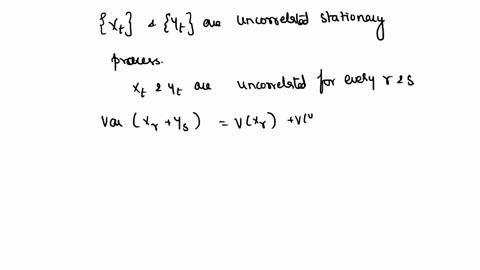 {Xt} & {Yt} are uncorrelated stationary
process.
Xt & Yt are uncorrelated for every r & s
Var (Xr + Ys) = V(Xr) + V(